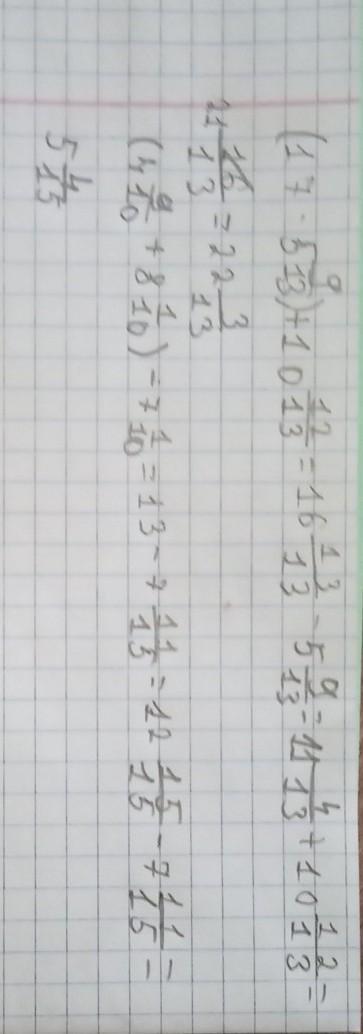 (17 - 5 9/13) + 10 12/13 = 16 13/13 - 5 9/13 = 11 4/13 + 10 12/13 =
21 16/13 = 22 3/13
(4 9/10 + 8 1/10) - 7 1/10 = 13 - 7 11/15 = 12 15/15 - 7 11/15 =
5 4/15